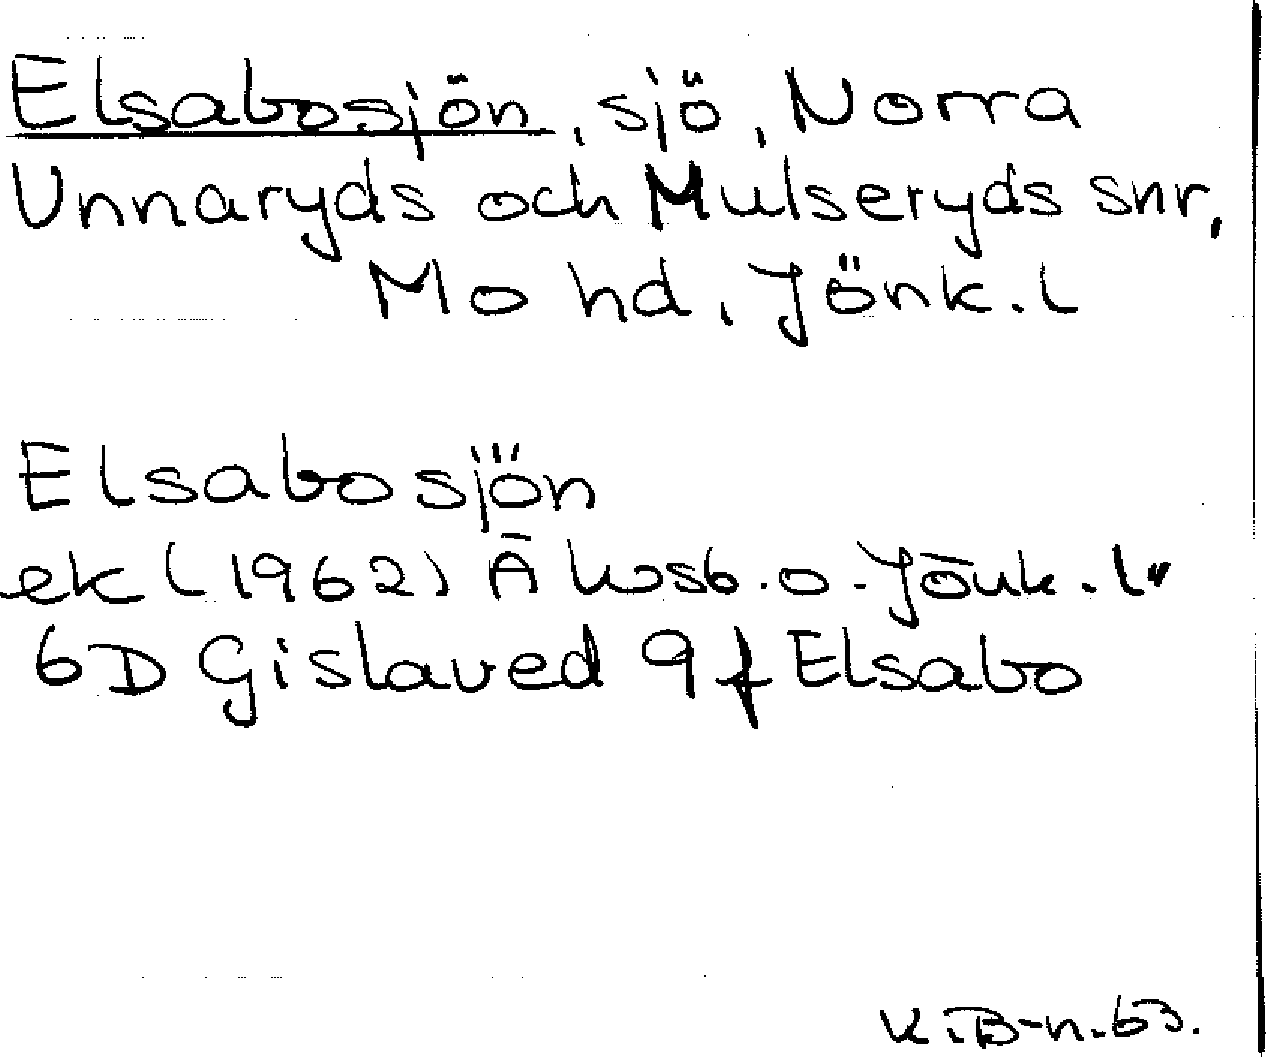 Elsabosjön, sjö, Norra
Unnaryds och Mulseryds snr,
Mo hd, Jönk. l
Elsabosjön
ek (1962) Ä lvsb. o. Jönk. l.
6D Gislaved 9f Elsabo
K. B-n. 63.